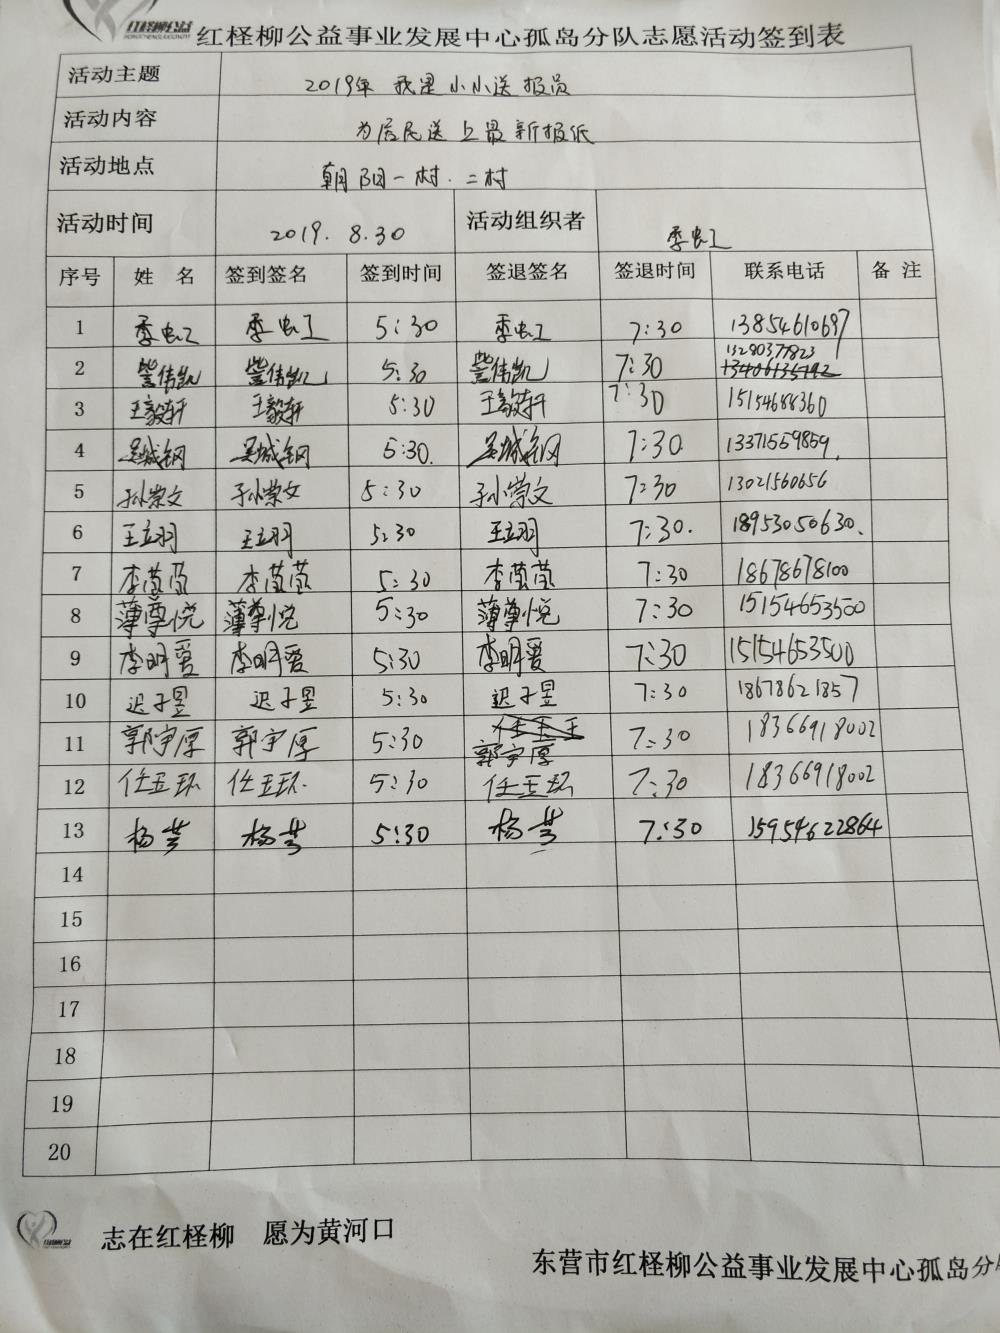 红柽柳公益
红柽柳公益事业发展中心孤岛分队志愿活动签到表
活动主题 2019年 我是小小送报员
活动内容 为居民送上最新报纸
活动地点 朝阳一村.二村
活动时间 2019.8.30 活动组织者 季虹
序号 姓 名 签到签名 签到时间 签退签名 签退时间 联系电话 备 注
1 季虹 季虹 5:30 季虹 7:30 13854610697
2 訾伟凯 訾伟凯 5:30 訾伟凯 7:30 13280377823
3 王毅轩 王毅轩 5:30 王毅轩 7:30 15154688360
4 吴城钢 吴城钢 5:30. 吴城钢 7:30. 13371559859.
5 孙崇文 孙崇文 5:30 孙崇文 7:30 13021560656
6 王立羽 王立羽 5:30 王立羽 7:30. 18953050630.
7 李莹莹 李莹莹 5:30 李莹莹 7:30 18678678100
8 薄尊悦 薄尊悦 5:30 薄尊悦 7:30 15154653500
9 李明爱 李明爱 5:30 李明爱 7:30 15154653500
10 迟子昱 迟子昱 5:30 迟子昱 7:30 18678621857
11 郭宇厚 郭宇厚 5:30 郭宇厚 7:30 18366918002
12 任玉环 任玉环. 5:30 任玉环 7:30 18366918002
13 杨芸 杨芸 5:30 杨芸 7:30 15954622864
14
15
16
17
18
19
20
志在红柽柳 愿为黄河口
东营市红柽柳公益事业发展中心孤岛分